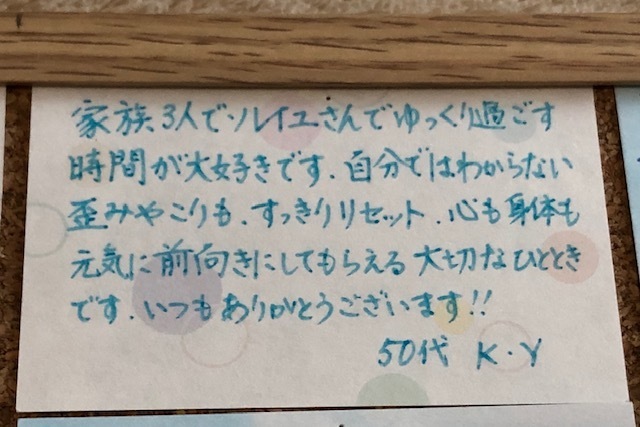 家族3人でソレイユさんでゆっくり過ごす
時間が大好きです.自分ではわからない
歪みやこりも.すっきりリセット.心も身体も
元気に前向きにしてもらえる大切なひととき
です.いつもありがとうございます!!
50代 K・Y